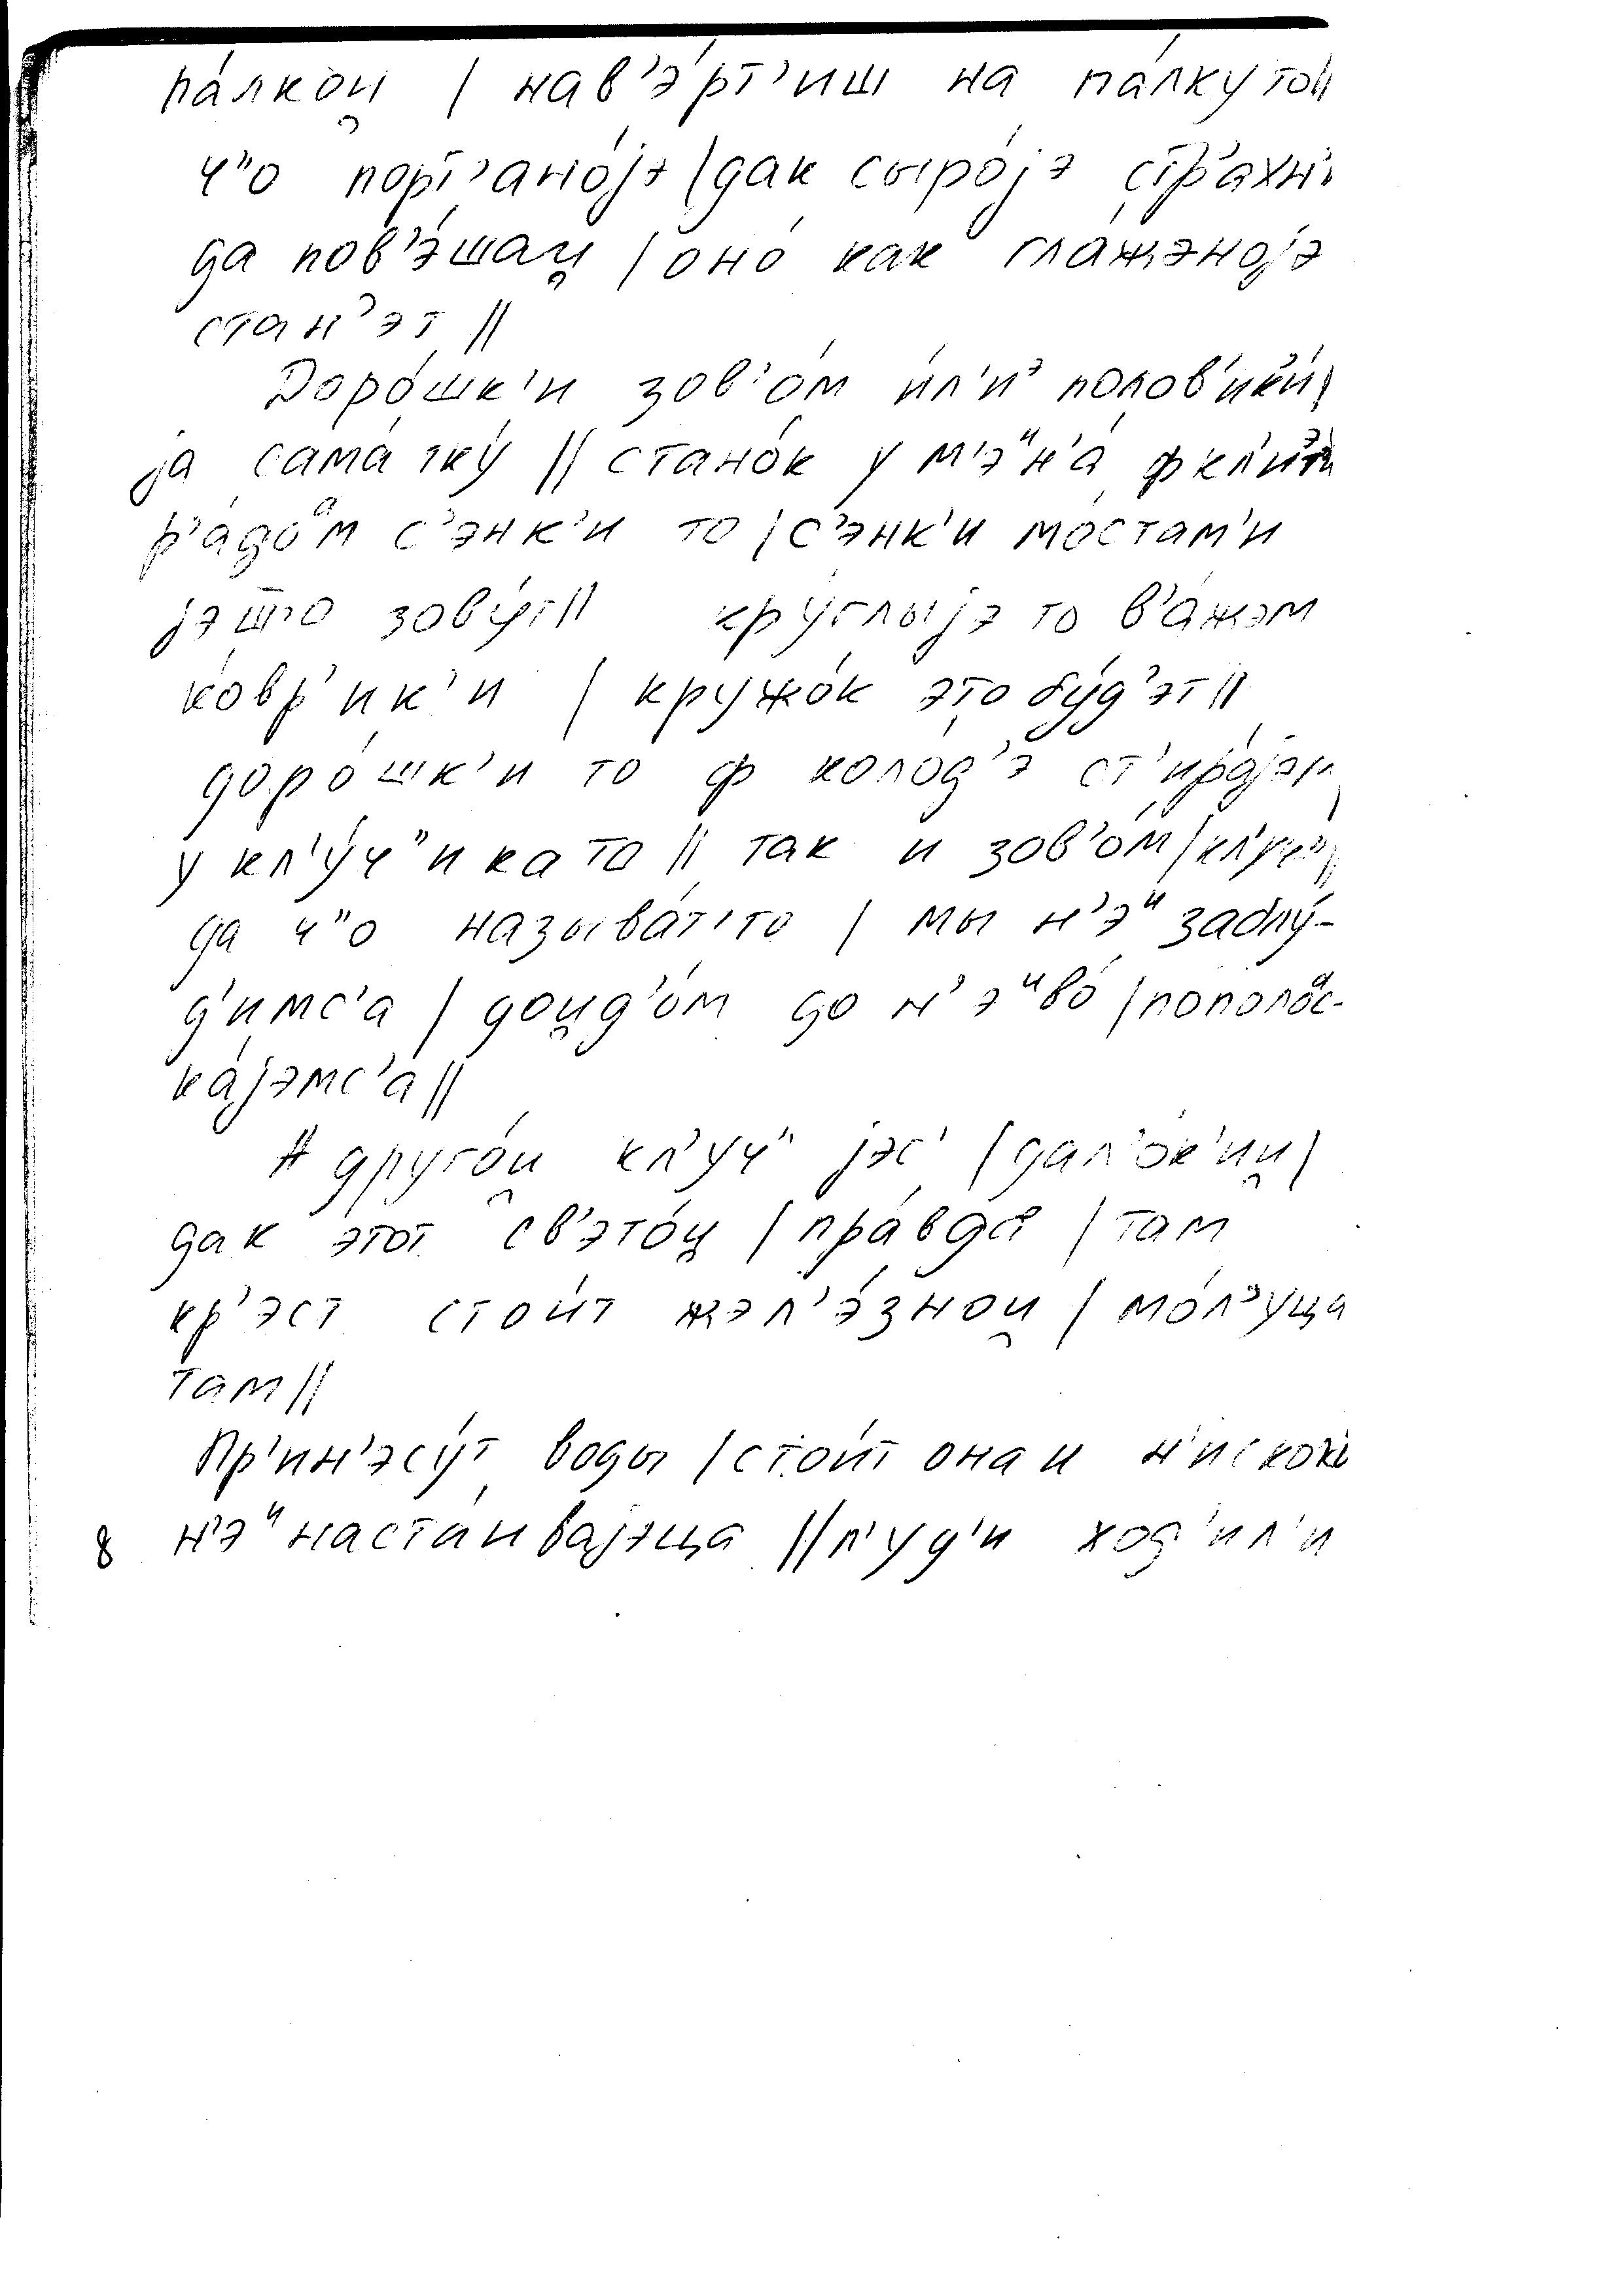 па́лкои̯ | нав’э́рт’иш на па́лку то||
ч”о порт’ано́jэ | дак сыро́jэ стр’ахн’и
да пов’э́шаи̯ | оно́ как гла́жэноjэ
стан’эт ||
Доро́шк’и зов’о́м и́л’и полов’ик’и́ |
jа сама́ тку́ || стано́к у м’эᶸн’а́
р’а́доᵃм с’энк’и то | с’энк’и моста́м’и
jэшт’о зову́т || кру́глыjэ то в’а́жэм
ко́вр’ик’и | кружо́к э́то бу́д’эт ||
доро́шк’и то ф коло́д’э
у кл’у́ч”ика то || так и зов’о́м | кл’уч” ||
да ч”о называ́т’ то | мы н’эᶸ заблу́-
д’имс’а | дои̯д’о́м до н’эᶸво́ | пополоᵃс-
ка́jэмс’а ||
А друго́и̯ кл’уч” jэс’ | дал’о́к’ии̯ |
дак этот св’этои̯ | пра́вда | там
кр’эст стои́т жэл’э́знои̯ | мо́л’уца
там ||
Пр’ин’эсу́т воды | стои́т она и
8 н’эᶸ наста́иваjэца || л’у́д’и ход’ил’и